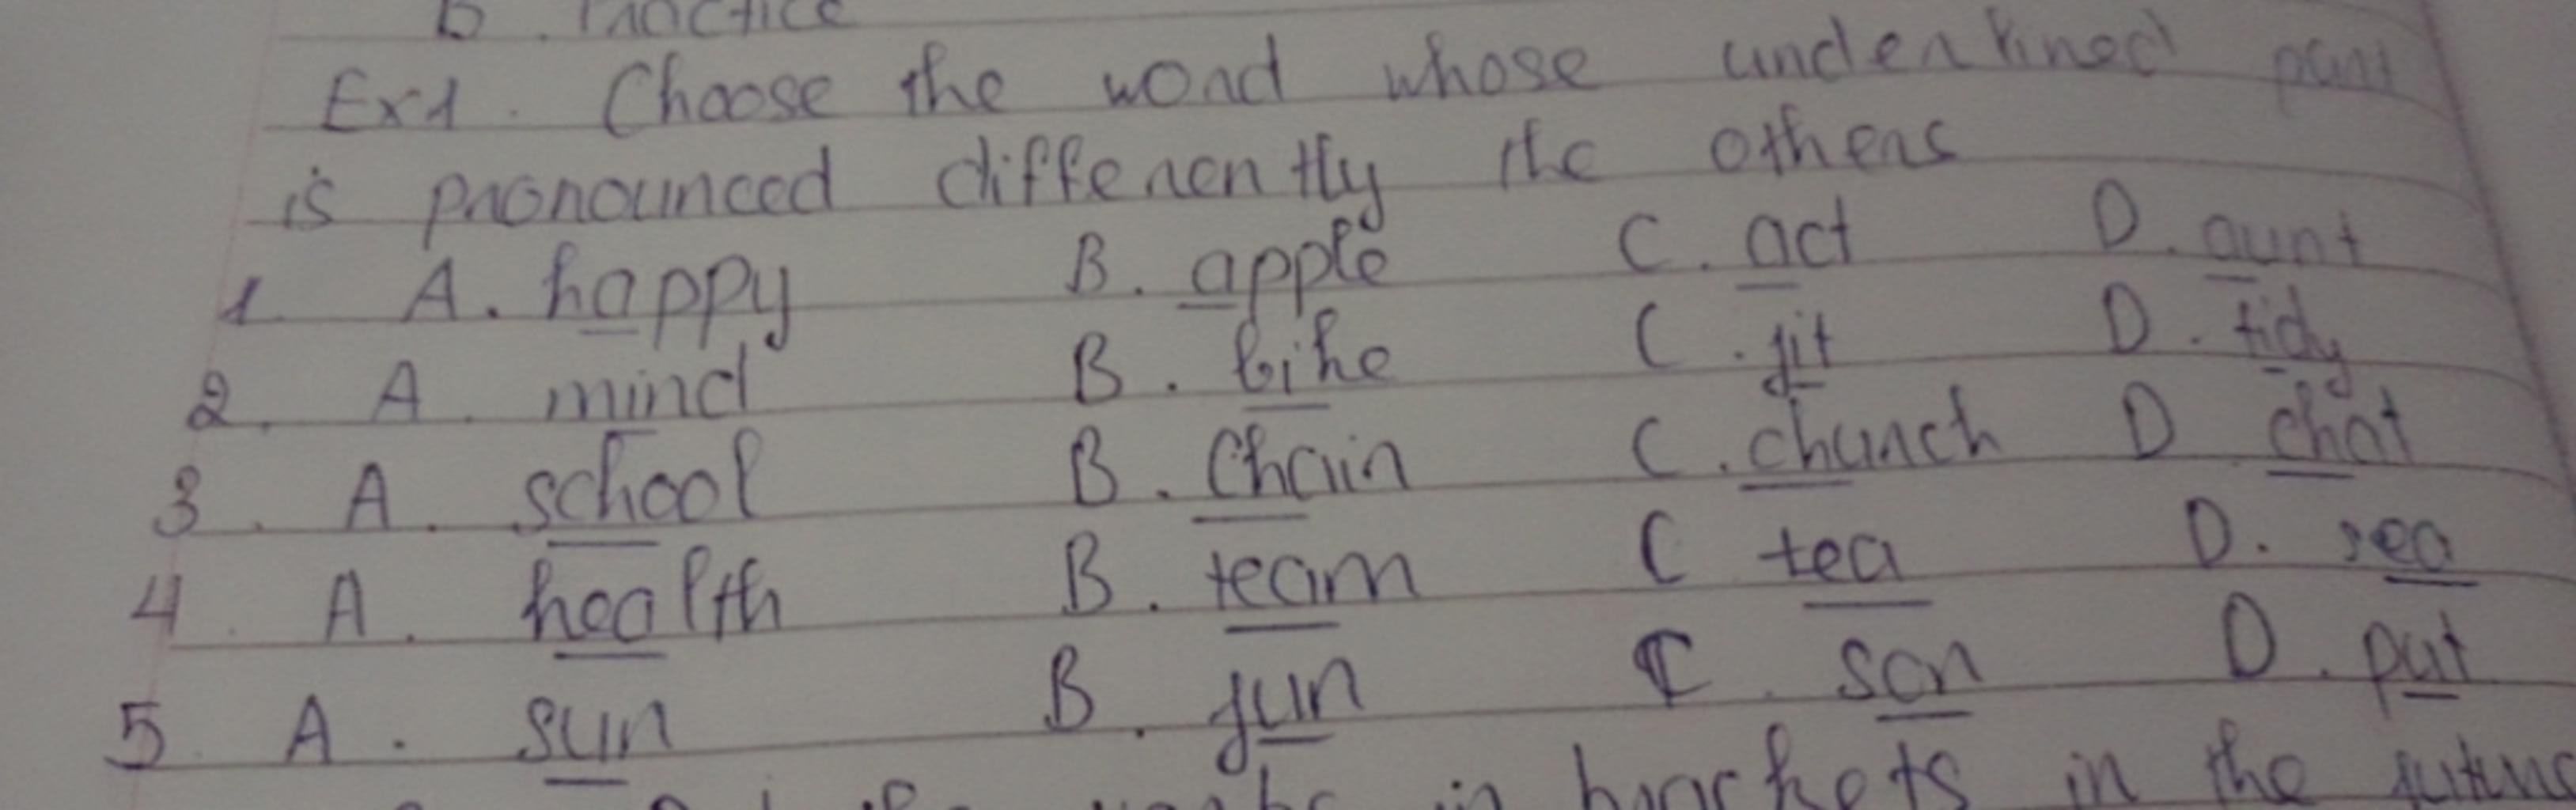 b. Practice
Ex1. Choose the word whose underlined part
is pronounced differently the others
1. A. happy B. apple C. act D. aunt
2. A. mind B. bike C. fit D. tidy
3. A. school B. Chain C. church D chat
4. A. health B. team C tea D. sea
5. A. sun B. fun C. son D. put
in brackets in the future